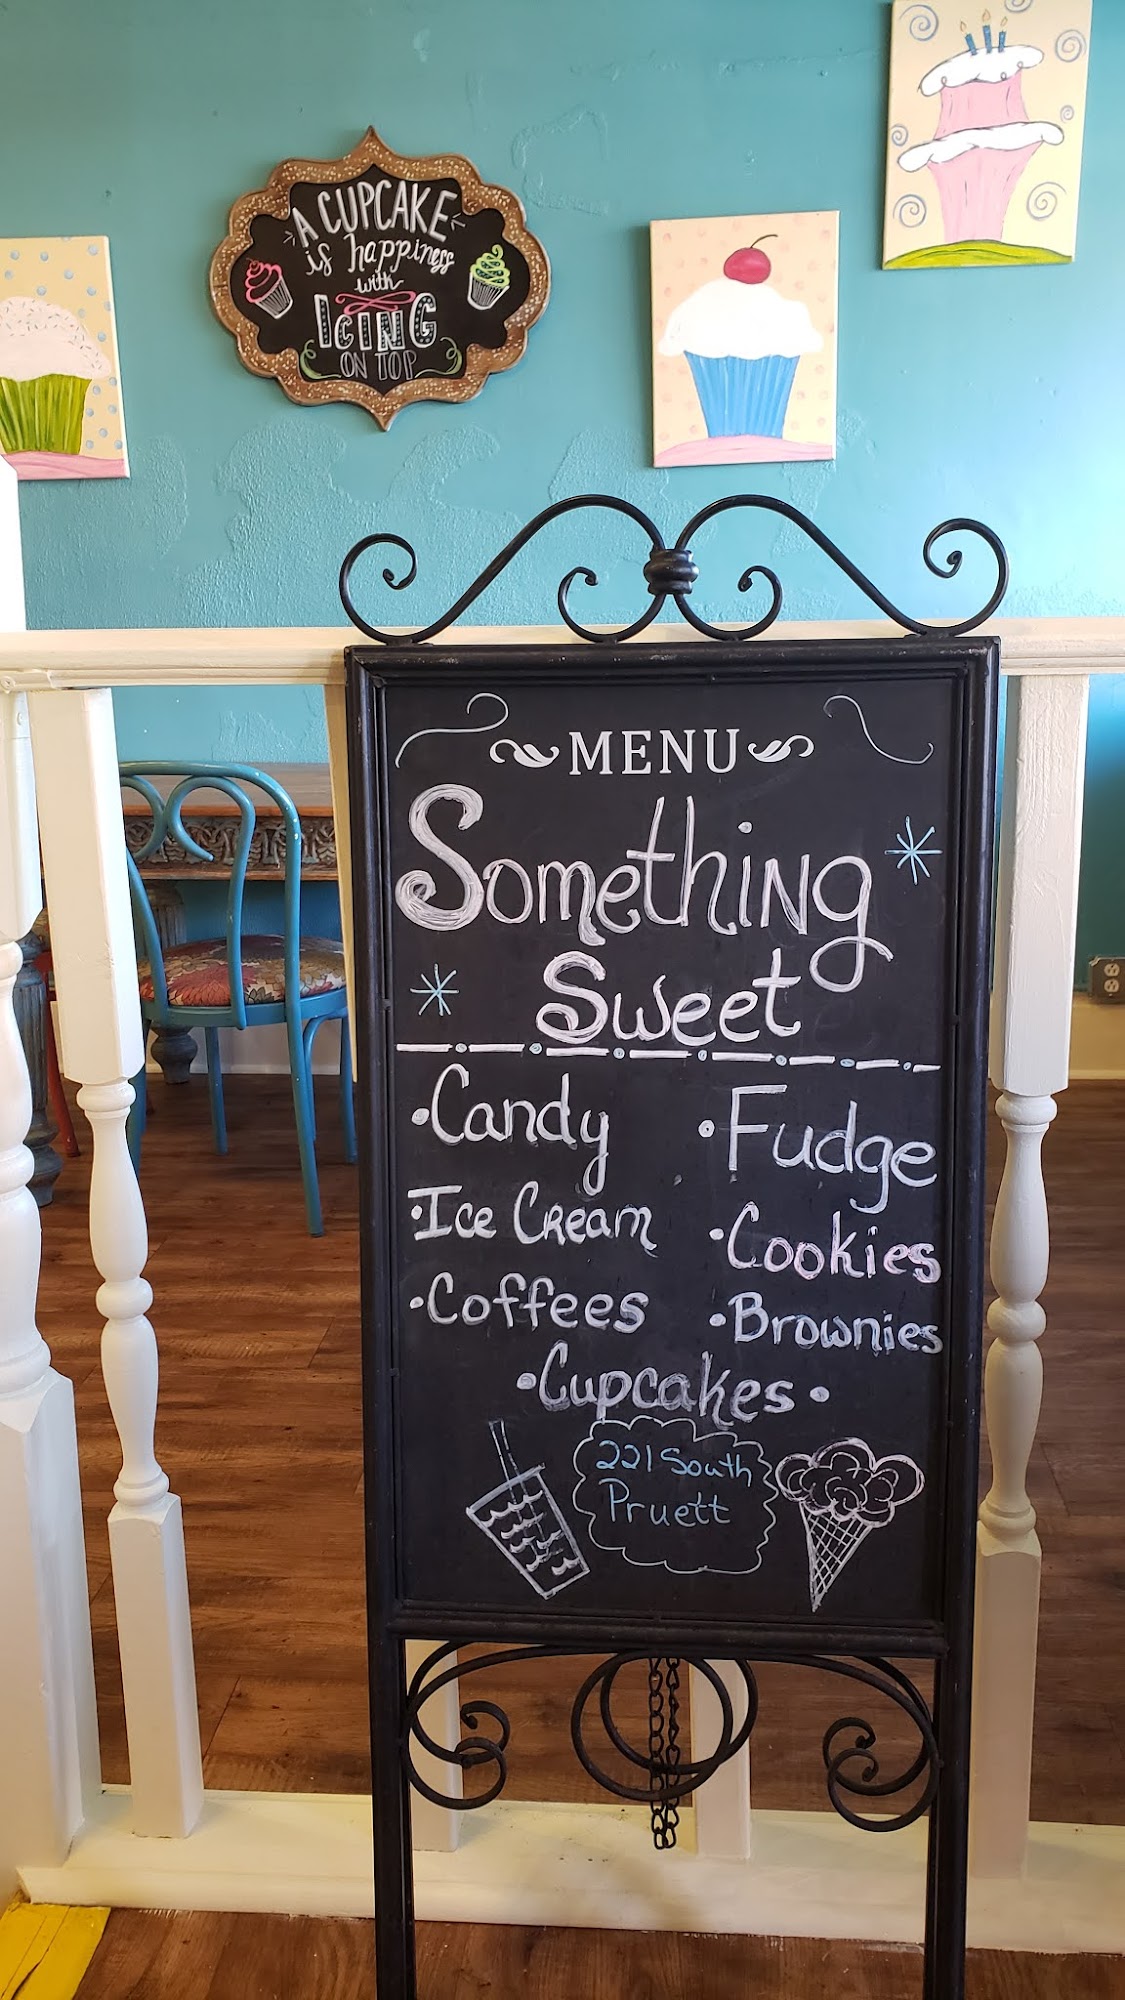 A CUPCAKE
is happiness
with
ICING
ON TOP
MENU
Something
Sweet
•Candy
•Fudge
•Ice Cream
•Cookies
•Coffees
•Brownies
•Cupcakes•
221 South
Pruett